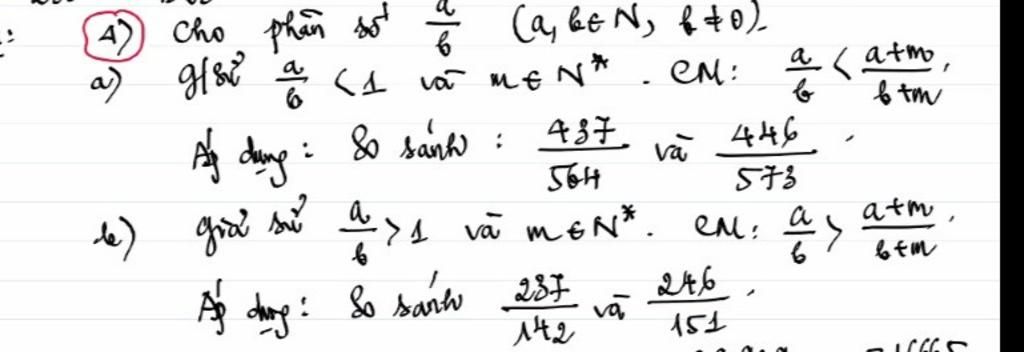 4) Cho phân số a/b (a, b ∈ N, b ≠ 0).
a) g/sử a/b < 1 và m ∈ N*. CM: a/b < (a+m)/(b+m).
Áp dụng: So sánh: 437/564 và 446/573.
b) giả sử a/b > 1 và m ∈ N*. CM: a/b > (a+m)/(b+m).
Áp dụng: So sánh 237/142 và 246/151.